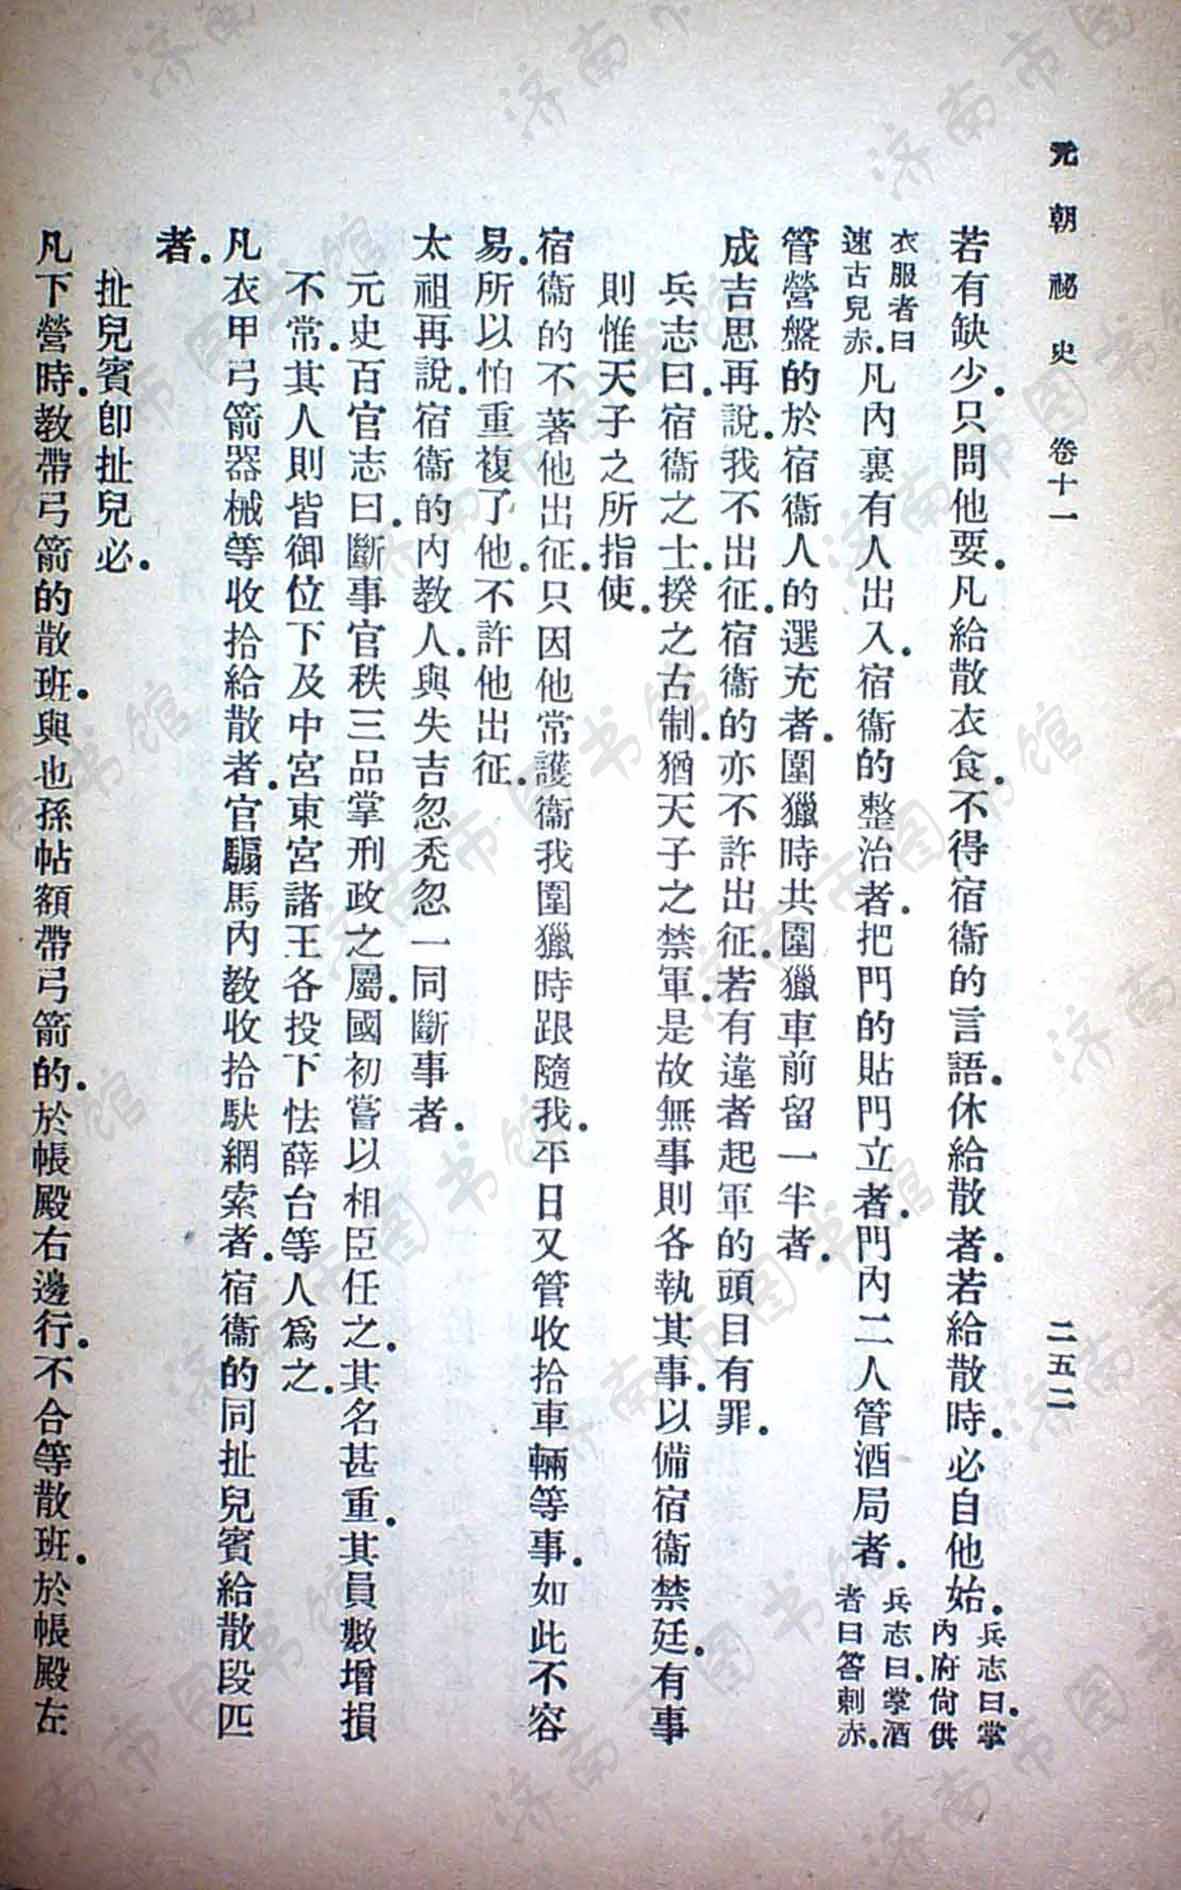 元朝祕史 卷十一 二五二
若有缺少.只問他要.凡給散衣食.不得宿衞的言語.休給散者.若給散時.必自他始.兵志曰.掌內府尙供
衣服者曰速古兒赤.凡內裏有人出入.宿衞的整治者.把門的貼門立者.門內二人管酒局者.兵志曰.掌酒者曰答剌赤.
管營盤的於宿衞人的選充者.圍獵時共圍獵車前留一半者.
成吉思再說.我不出征.宿衞的亦不許出征.若有違者起軍的頭目有罪.
兵志曰.宿衞之士.揆之古制.猶天子之禁軍.是故無事則各執其事.以備宿衞禁廷.有事
則惟天子之所指使.
宿衞的不著他出征.只因他常護衞我圍獵時跟隨我.平日又管收拾車輛等事.如此不容
易.所以怕重複了他.不許他出征.
太祖再說.宿衞的內教人.與失吉忽禿忽一同斷事者.
元史百官志曰.斷事官秩三品掌刑政之屬.國初嘗以相臣任之.其名甚重.其員數增損
不常.其人則皆御位下及中宮東宮諸王各投下怯薛台等人爲之.
凡衣甲弓箭器械等收拾給散者.官騸馬內教收拾馱網索者.宿衞的同扯兒賓給散段匹
者.
扯兒賓卽扯兒必.
凡下營時.教帶弓箭的散班.與也孫帖額帶弓箭的.於帳殿右邊行.不合等散班.於帳殿左
济南市图书馆